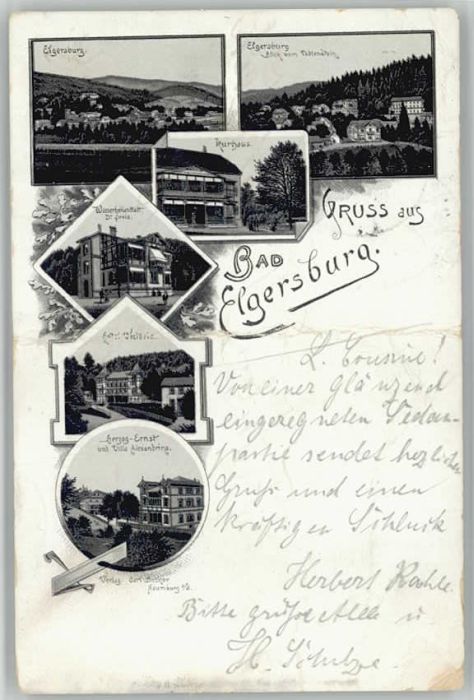 Elgersburg.
Elgersburg
Blick vom
Kurhaus.
Wasserheilanstalt
Gruss aus
Bad
Elgersburg.
Hotel
Herzog-Ernst
und Villa
Verlag
Naumburg a/S.
L. Cousine!
Von einer glänzend
eingeregneten Sedan-
partie sendet herzlichen
Gruß und einen
kräftigen Schluck
Herbert
Bitte grüße Alle u
H. Schulze